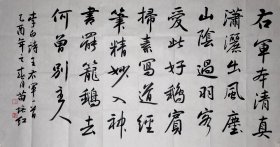 右軍本清真
瀟灑出風塵
山陰過羽客
愛此好鵝賓
掃素寫道經
筆精妙入神
書罷籠鵝去
何曾別主人
李白詩王右軍一首
乙酉年之春月苗培红